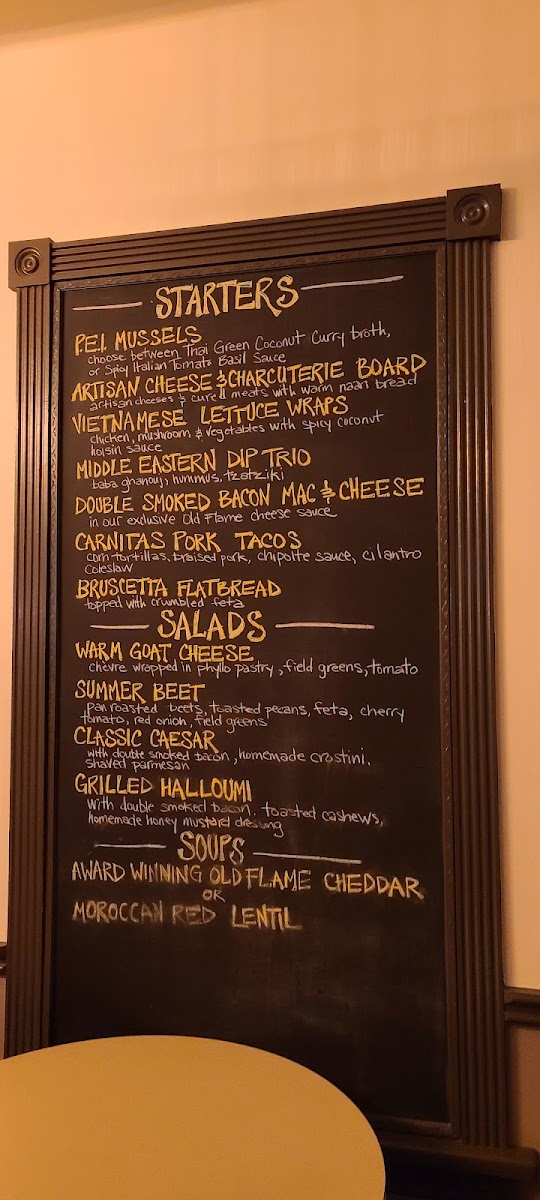 STARTERS
P.E.I. MUSSELS
choose between Thai Green Coconut Curry broth,
or Spicy Italian Tomato Basil Sauce
ARTISAN CHEESE & CHARCUTERIE BOARD
artisan cheeses & cured meats with warm naan bread
VIETNAMESE LETTUCE WRAPS
chicken, mushroom & vegetables with spicy coconut
hoisin sauce
MIDDLE EASTERN DIP TRIO
baba ghanouj, hummus, tzatziki
DOUBLE SMOKED BACON MAC & CHEESE
in our exclusive Old Flame cheese sauce
CARNITAS PORK TACOS
corn tortillas, braised pork, chipolte sauce, cilantro
coleslaw
BRUSCETTA FLATBREAD
topped with crumbled feta
SALADS
WARM GOAT CHEESE
chevre wrapped in phyllo pastry, field greens, tomato
SUMMER BEET
pan roasted beets, toasted pecans, feta, cherry
tomato, red onion, field greens
CLASSIC CAESAR
with double smoked bacon, homemade crostini,
shaved parmesan
GRILLED HALLOUMI
with double smoked bacon, toasted cashews,
homemade honey mustard dressing
SOUPS
AWARD WINNING OLD FLAME CHEDDAR
OR
MOROCCAN RED LENTIL